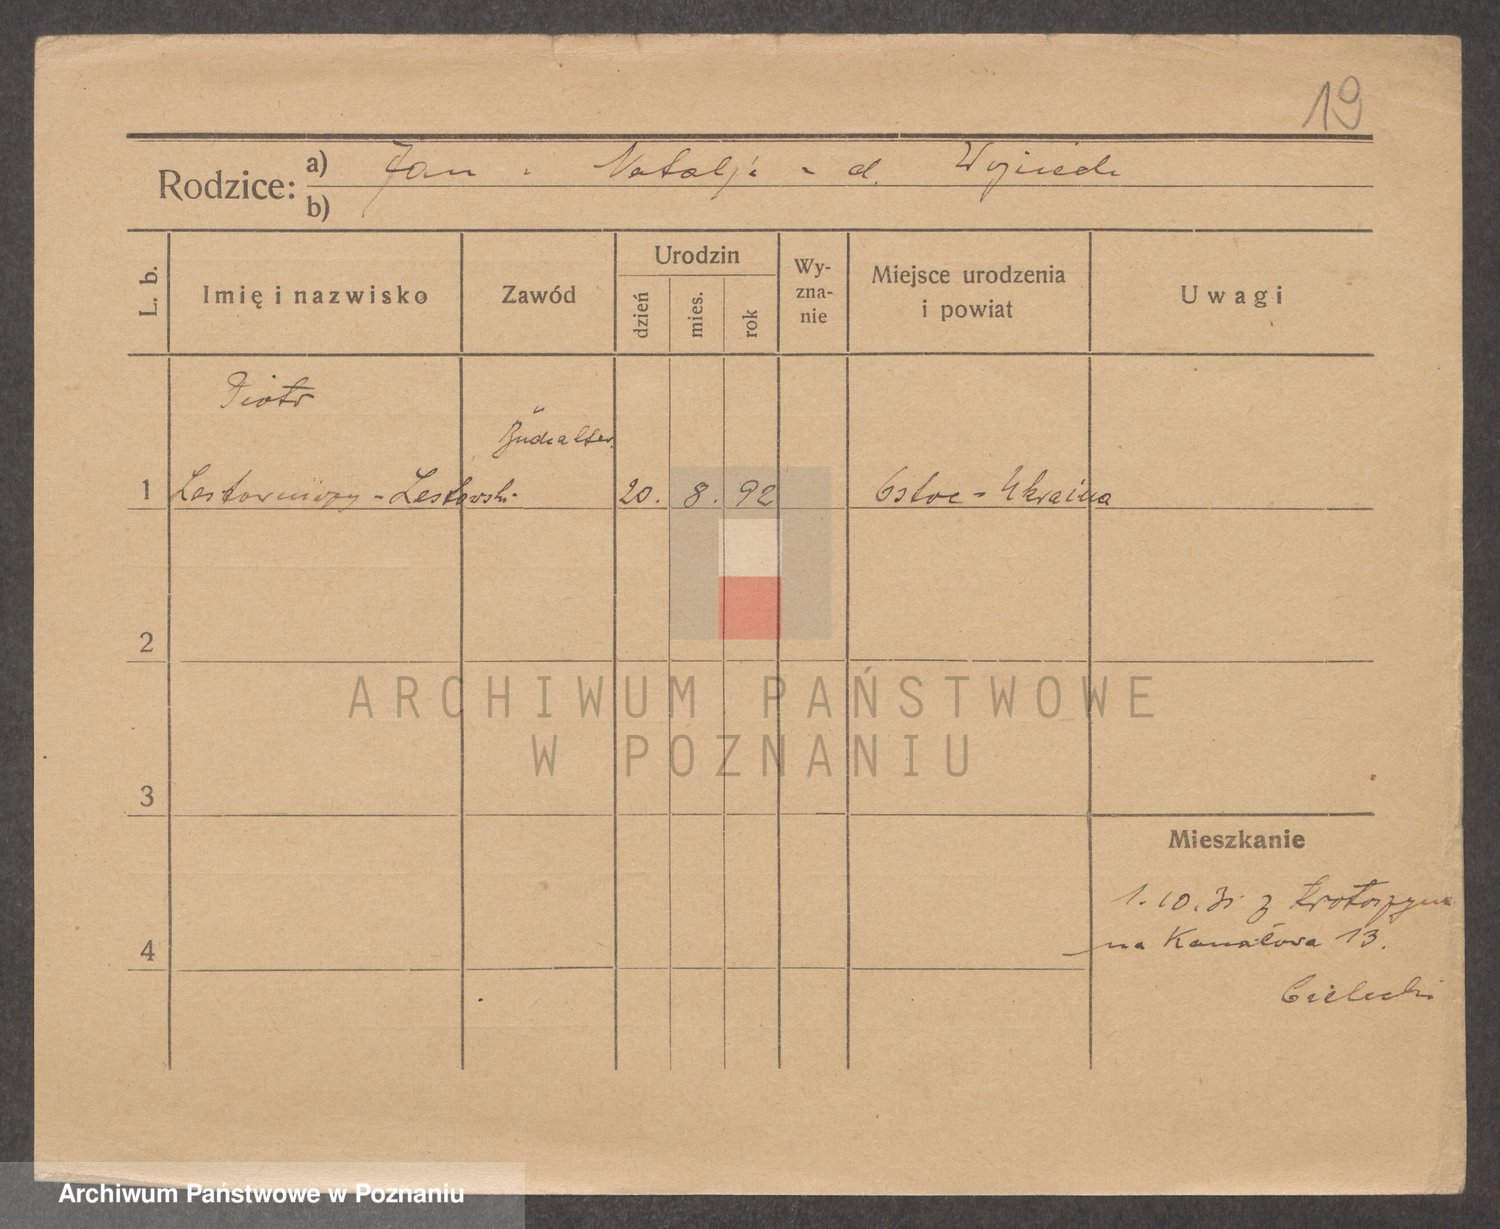 19
Rodzice: a) Jan - Natalji - d. Wojciech
b)
L. b.
Imię i nazwisko
Zawód
Urodzin
dzień
mies.
rok
Wy-
zna-
nie
Miejsce urodzenia
i powiat
Uwagi
Piotr
1 - Lestowski 20. 8. 92 - Ukraina
2
ARCHIWUM PAŃSTWOWE
W POZNANIU
3
Mieszkanie
1.10.31 z Krotoszyna
na Kanałowa 13.
4
Cielecki
Archiwum Państwowe w Poznaniu